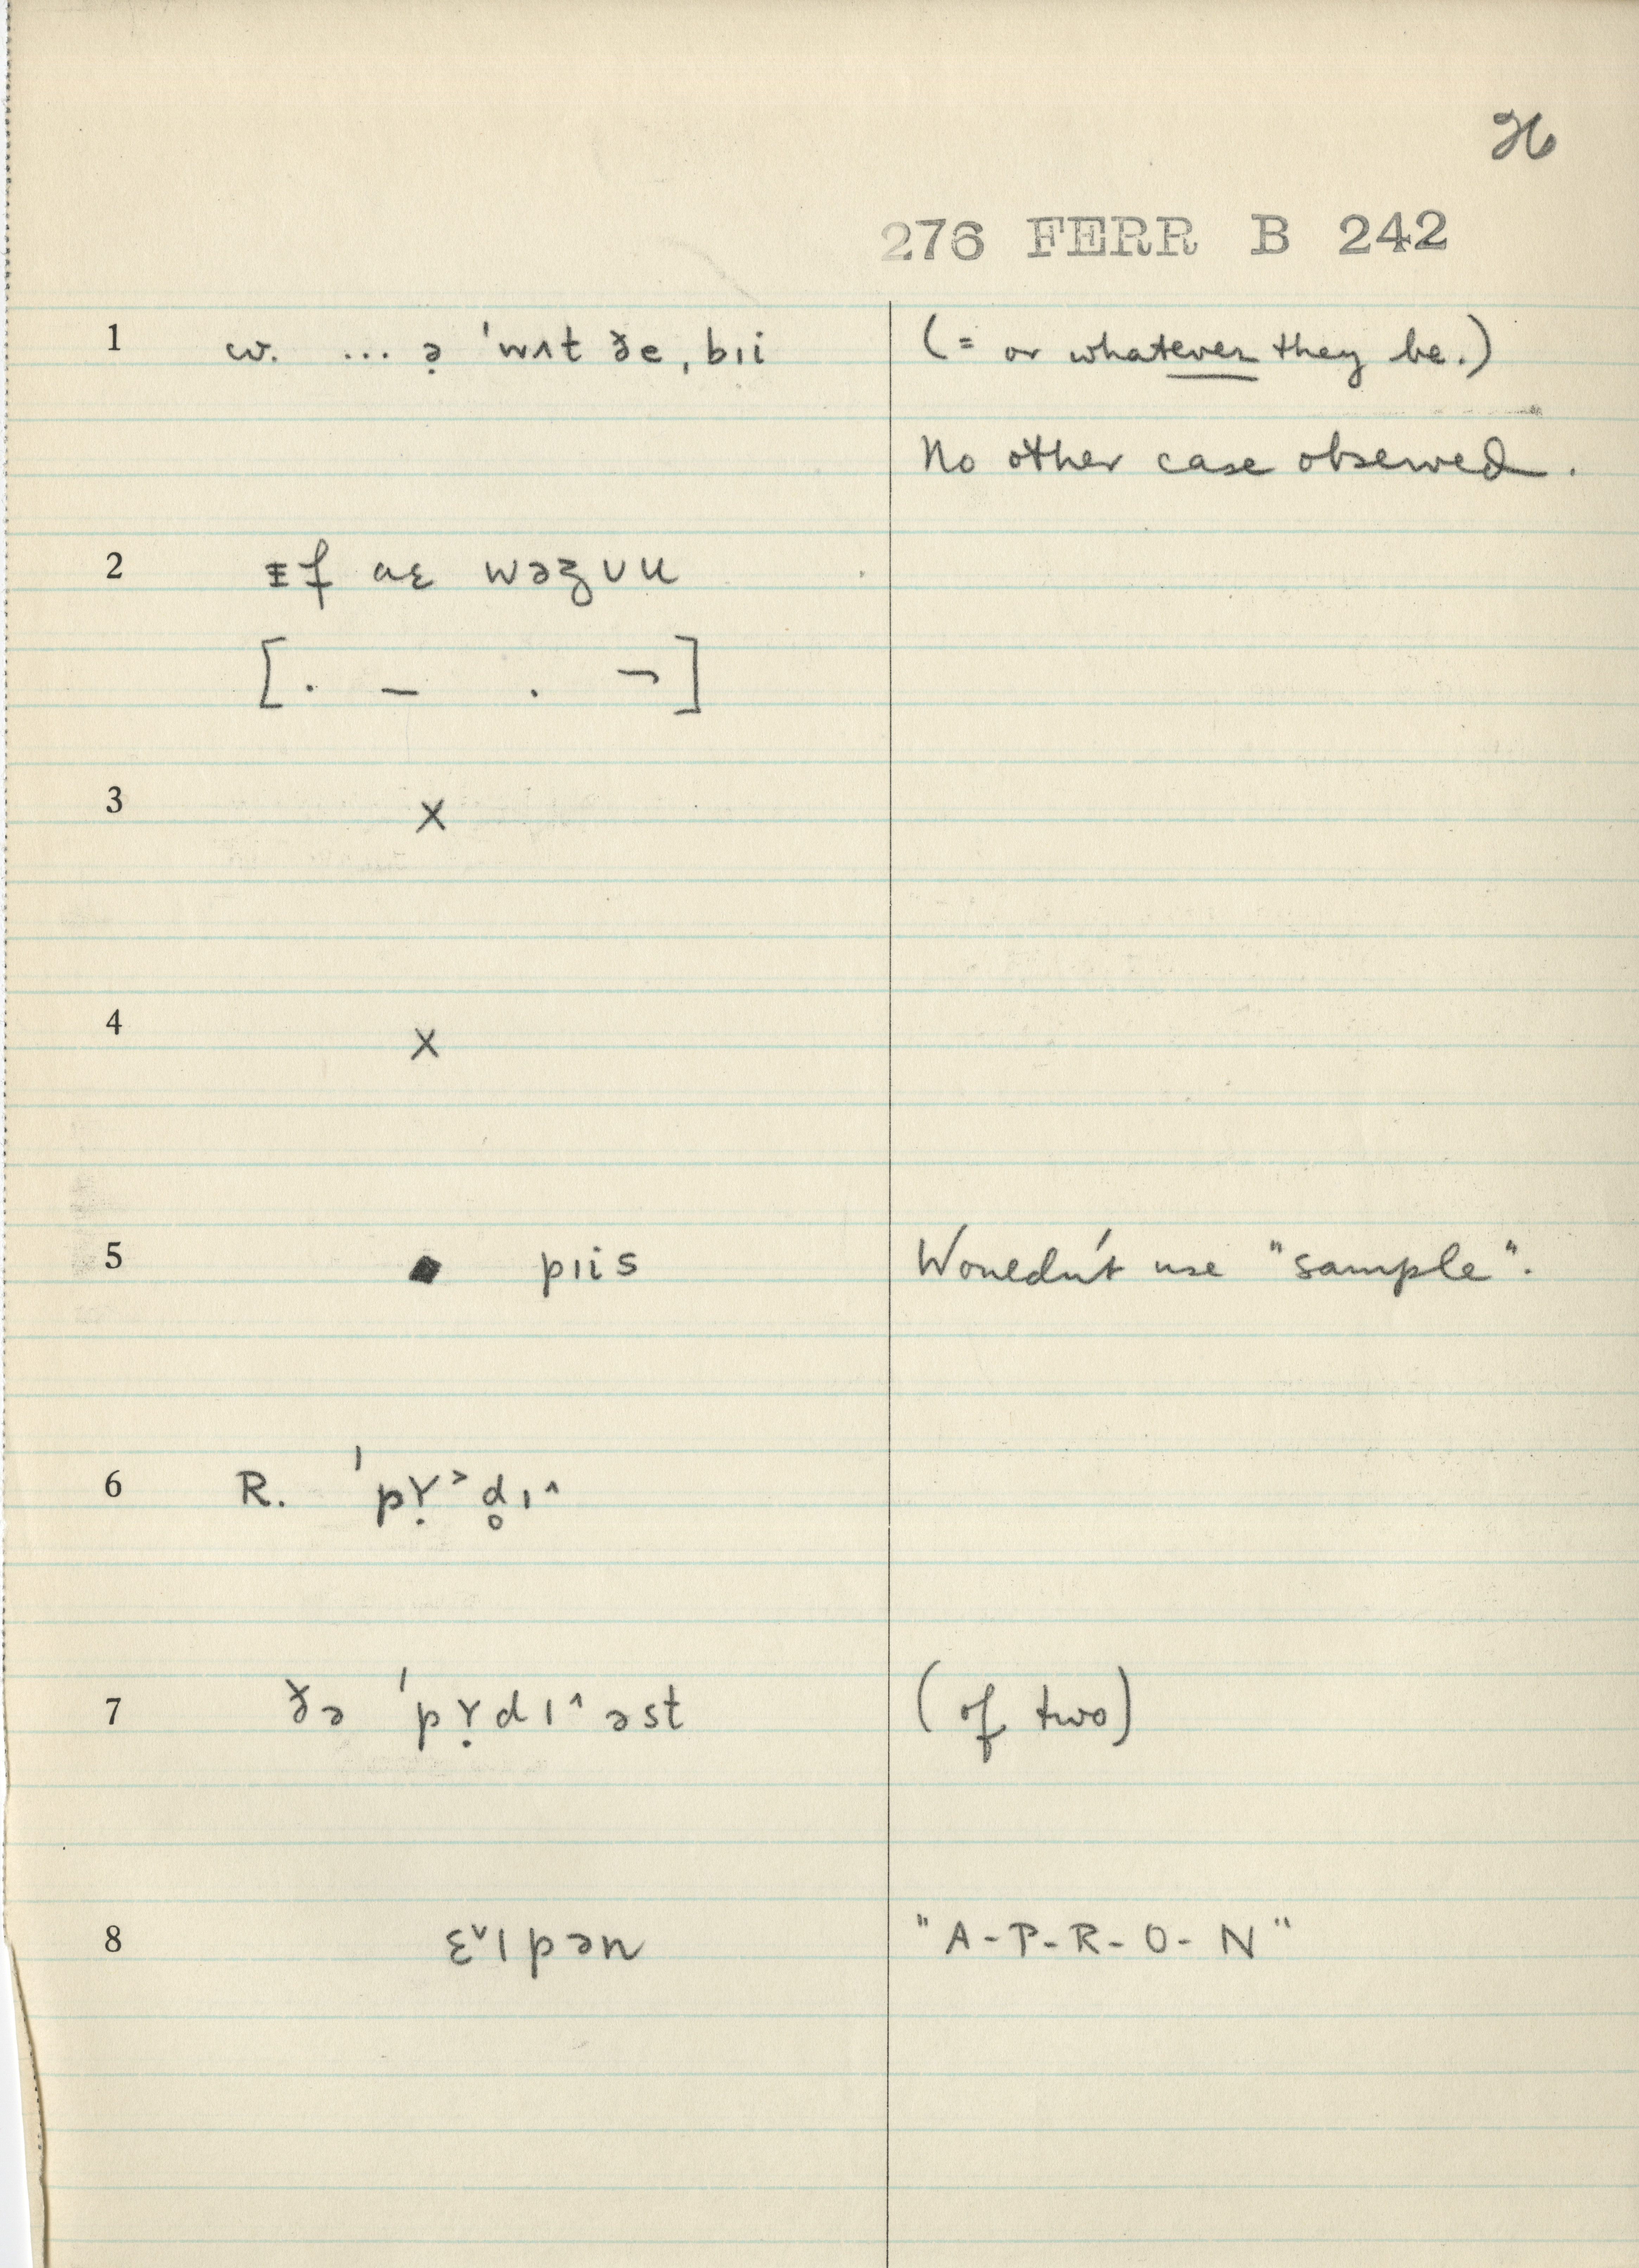 26
276 FERR B 242
1 w. ... ə̣ ˈwʌt ðe ˌbɪi (= or whatever they be.)
No other case observed.
2 ɪf aɛ wəʒ ʊu
[. – . ¬]
3 X
4 X
5 ■ pɪis Wouldn't use "sample".
6 R. ˈpɤ̣˃d̥ɪ^
7 ðə ˈpɤ̣dɪ^əst (of two)
8 ɛ˅ɪpən "A-P-R-O-N"